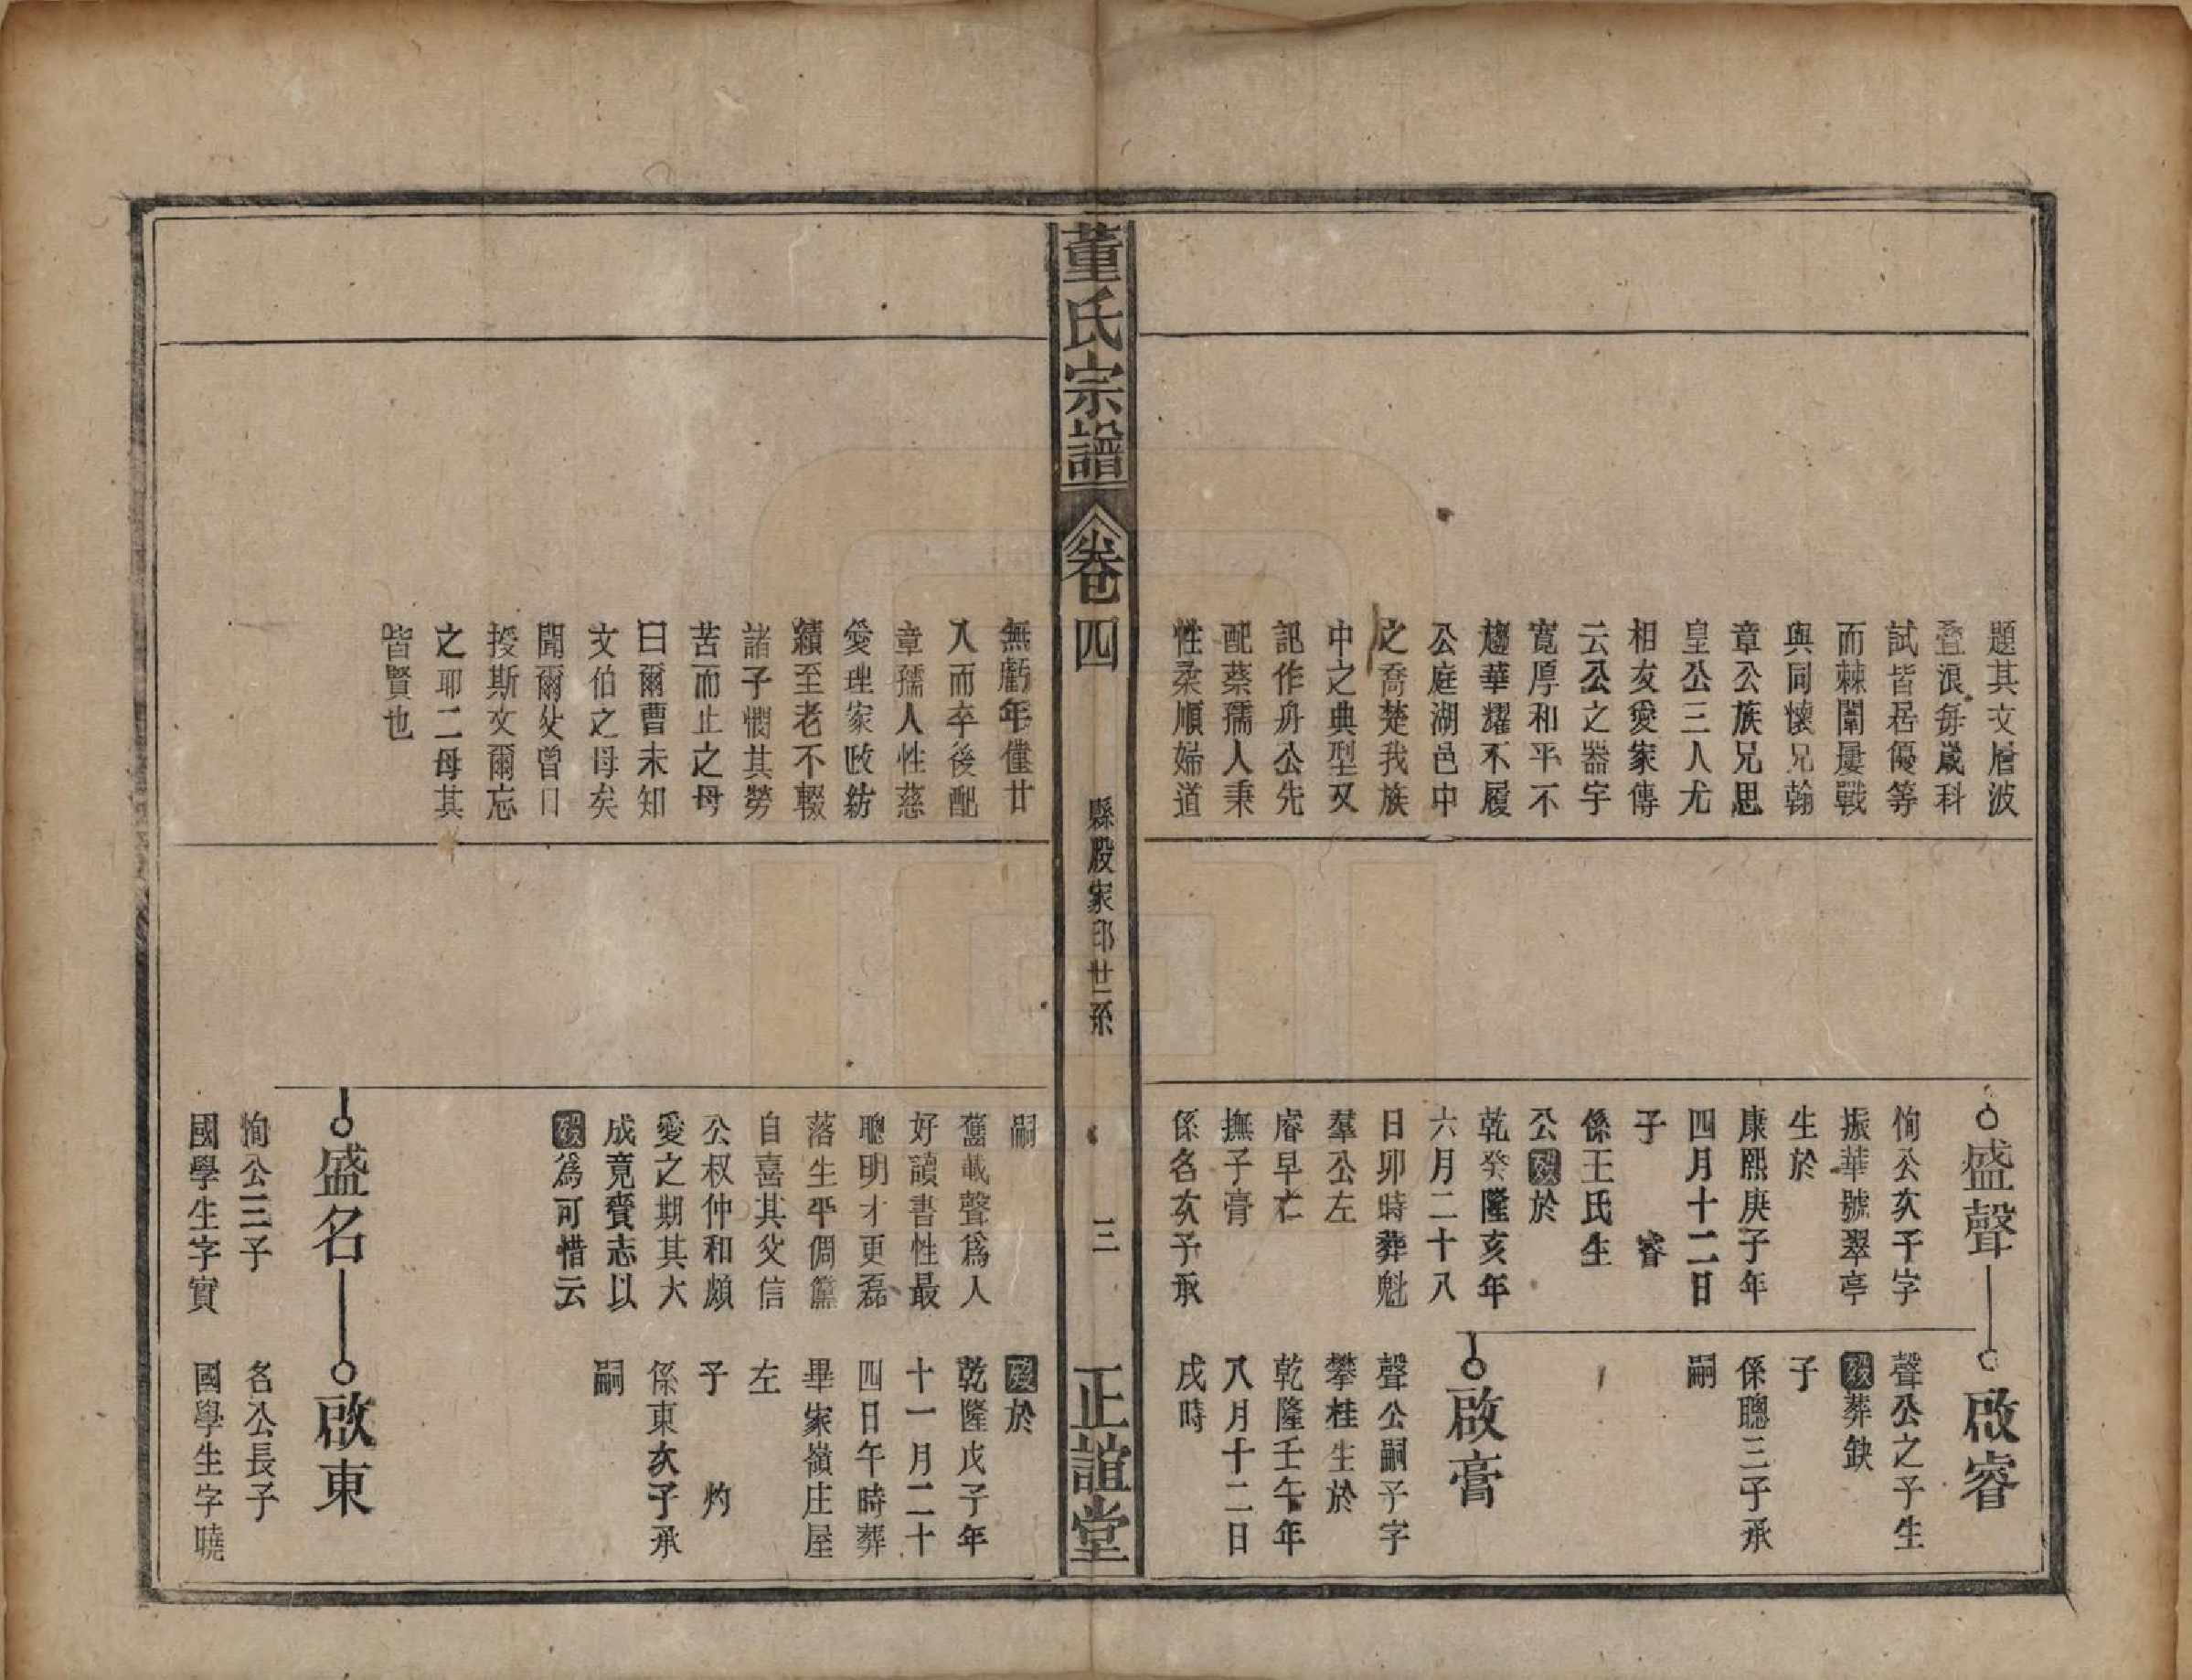 題其文層波
叠浪每歲科
試皆居優等
而棘闈屢戰
與同懷兄翰
章公族兄思
皇公三人尤
相友愛家傳
云公之器宇
寬厚和平不
趨華耀不履
公庭湖邑中
之喬楚我族
中之典型又
記作舟公先
配蔡孺人秉
性柔順婦道
盛聲
恂公次子字
振華號翠亭
生於
康熙庚子年
四月十二日
子 睿
係王氏生
公歿於
乾癸隆亥年
六月二十八
日卯時葬魁
羣公左
睿早亡
撫子膏
係名次子承
啟睿
聲公之子生
歿葬缺
子
係聰三子承
嗣
啟膏
聲公嗣子字
攀桂生於
乾隆壬午年
八月十二日
戌時
董氏宗譜
卷四
縣股家邱世系
三
正誼堂
無虧年僅廿
入而卒後配
章孺人性慈
愛理家政紡
績至老不輟
諸子憫其勞
苦而止之母
曰爾曹未知
文伯之母矣
聞爾父曾日
授斯文爾忘
之耶二母其
皆賢也
嗣
舊載聲為人
好讀書性最
聰明才更磊
落生平倜儻
自喜其父信
公叔仲和頗
愛之期其大
成竟賫志以
歿為可惜云
歿於
乾隆戊子年
十一月二十
四日午時葬
畢家嶺庄屋
左
子 灼
係東次子承
嗣
盛名
恂公三子
國學生字實
啟東
名公長子
國學生字曉